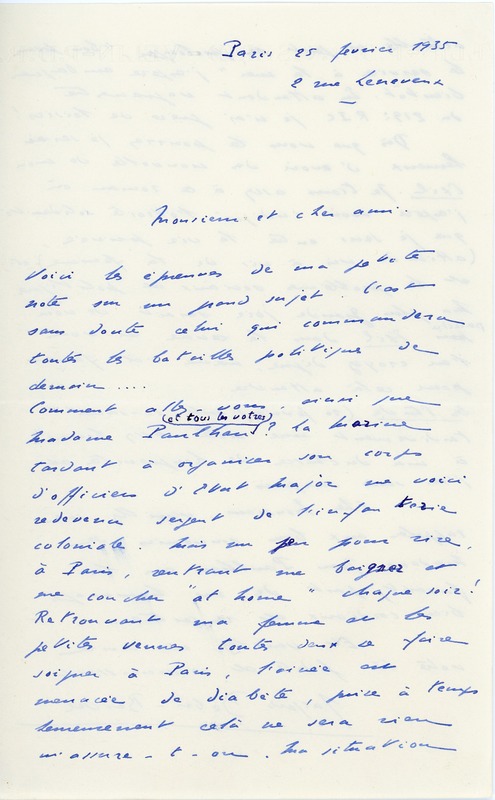 Paris 25 février 1935
2 rue Leneveux
Monsieur et cher ami.
Voici les épreuves de ma petite
note sur un grand sujet. C'est
sans doute celui qui commandera
toutes les batailles politiques de
demain ....
Comment allez vous, ainsi que
(et tous les votres)
Madame Paulhan? La marine
tardant à organiser son corps
d'officiers d'Etat Major me voici
redevenu sergent de l'infanterie
coloniale. Mais un peu pour rire,
à Paris, rentrant me baigner et
me coucher "at home" chaque soir!
Retrouvant ma femme et les
petites venues toutes deux se faire
soigner à Paris, l'ainée est
menacée de diabète, prise à temps
heureusement celà ne sera rien
m'assure-t-on. Ma situation